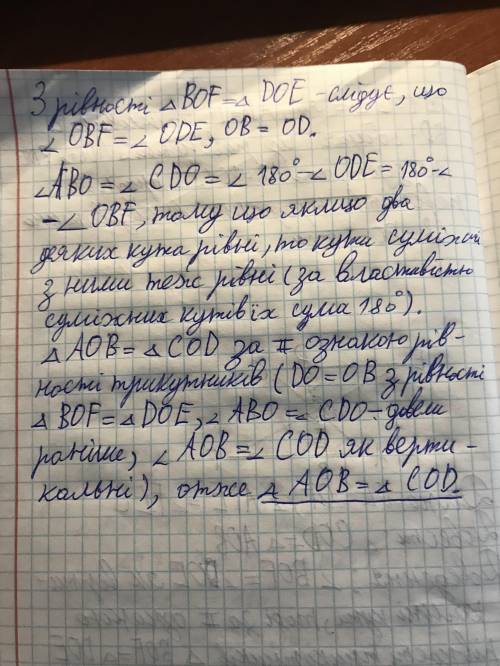 З рівності △BOF=△DOE -слідує, що
∠OBF=∠ODE, OB=OD.
∠ABO=∠CDO=∠180°-∠ODE=180°-∠
-∠OBF, тому що якщо два
деяких кута рівні, то кути суміжні
з ними теж рівні (за властивістю
суміжних кутів їх сума 180°).
△AOB=△COD за II ознакою рів-
ності трикутників (DO=OB з рівності
△BOF=△DOE, ∠ABO=∠CDO-довели
раніше, ∠AOB=∠COD як верти-
кальні), отже △AOB=△COD.